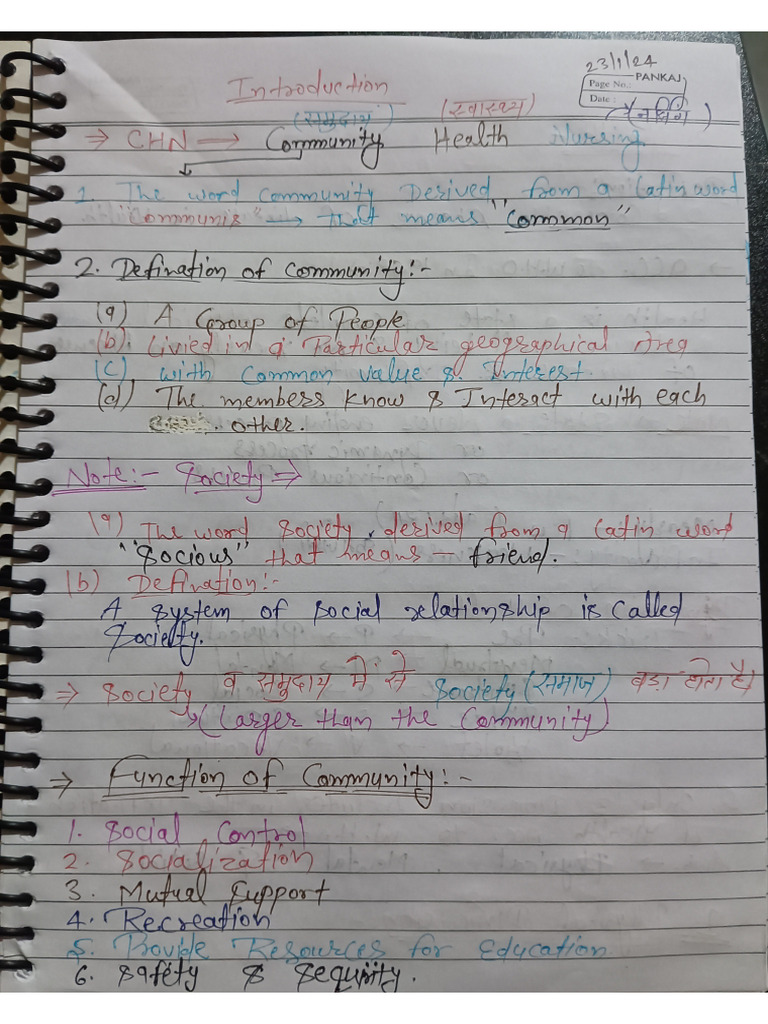 23/1/24
PANKAJ
Page No.:
Date :
Introduction
(समुदाय) (स्वास्थ्य) (नर्सिंग)
⇒ CHN → Community Health Nursing
1. The word community Derived from a Latin word
"Communis" → that means "Common"
2. Defination of community:-
(a) A Group of People
(b) Livied in a Particular geographical Area
(c) with Common value & Interest.
(d) The members know & Interact with each
other.
Note:- Society ⇒
(a) The word Society, derived from a Latin word
"Socious" that means - friend.
(b) Defination:-
A system of social relationship is called
Society.
⇒ Society व समुदाय में से Society (समाज) बड़ा होता है।
(Larger than the Community)
⇒ Function of Community:-
1. Social Control
2. Socialization
3. Mutual Support
4. Recreation
5. Provide Resources for Education
6. Safety & Sequrity.